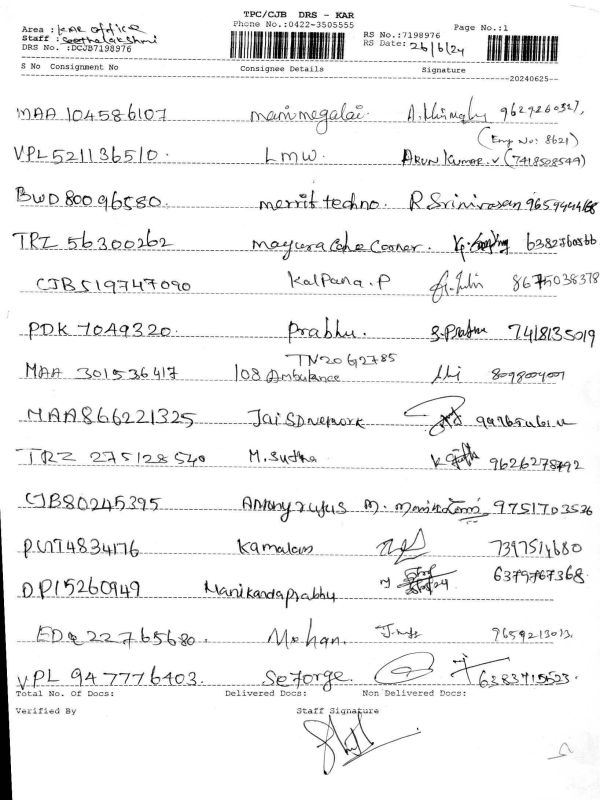 TPC/CJB DRS - KAR
Phone No.:0422-3505555
Area : KAR office
Staff : Seethalakshmi
DRS No. :DCJB7198976
RS No.:7198976
RS Date: 26/6/24
Page No.:1
S No Consignment No Consignee Details Signature
20240625--
MAA 104586107 manimegalai. 9629260327,
(Emp No: 8621)
VPL521136510. LMW. ARUN KUMAR.V (7418508549)
BWD80096580. merrit techno. R Srinivasan 9659444168
TRZ 56300262 mayura cake corner. 6382760566
CJB519747090 Kalpana.P 8675038378
PDK 7049320. Prabhu. S.Prabhu 7418135019
TN20G2785
MAA 301536417 108 Ambulance
MAA866221325 Jai SD Network
TRZ 275128540 M.Sudha 9626278792
CJB80245395 Antony rufus M. 9751703526
PUT74834176 Kamalam 7397514680
DPI5260949 Manikandaprabhu 6379767368
EDQ 22765680. Mohan. 9659213013.
VPL 947776403. Seforge. 6383715523.
Total No. Of Docs: Delivered Docs: Non Delivered Docs:
Verified By Staff Signature